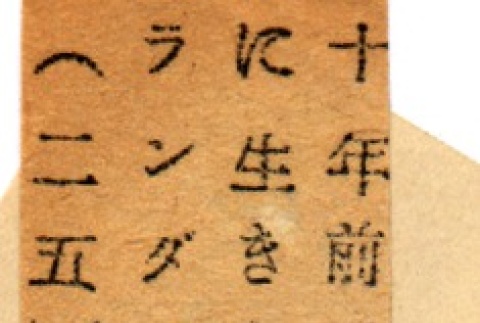 十年前
に生き
ランダ
（二五